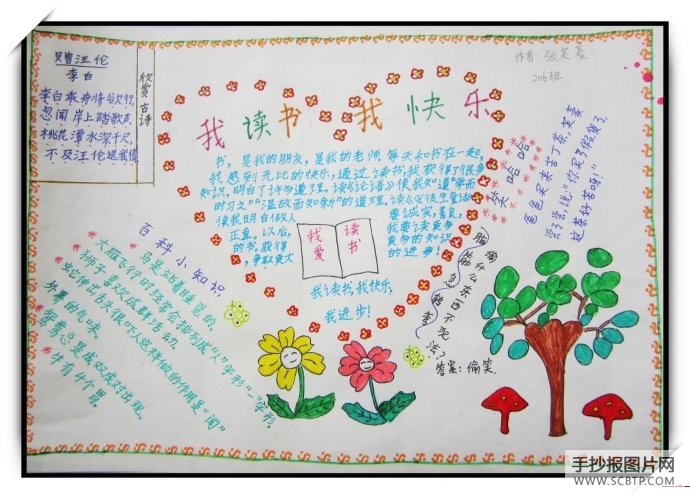 赠汪伦
李白
李白乘舟将欲行，
忽闻岸上踏歌声。
桃花潭水深千尺，
不及汪伦送我情。
欣赏古诗
作者：张芙蓉
206班
我读书 我快乐
书，是我的朋友，是我的老师，每天和书在一起，
我感到无比的快乐，通过读书，我获得了很多
知识，明白了许多道理。读《论语》使我知“道”学而
时习之”“温故而知新”的道理。
使我明白做人要诚实，善良，
正直。以后，我要读更多
的书，获得更多的知识
，争取更大的进步！
我爱读书
我读书，我快乐，
我进步！
笑哈哈
百科小知识
马是站着睡觉的。
大雁飞行时经常会排列成“人”字形“一”字形
狮子喜欢成群活动
蛇伸出舌头很吓人，这样做的作用是“闻”
外界的气味。
鸳鸯总是成双成对出现。
牛有4个胃。
脑筋急转弯
偷什么东西不犯法？
答案：偷笑
手抄报图片网
WWW.SCBTP.COM